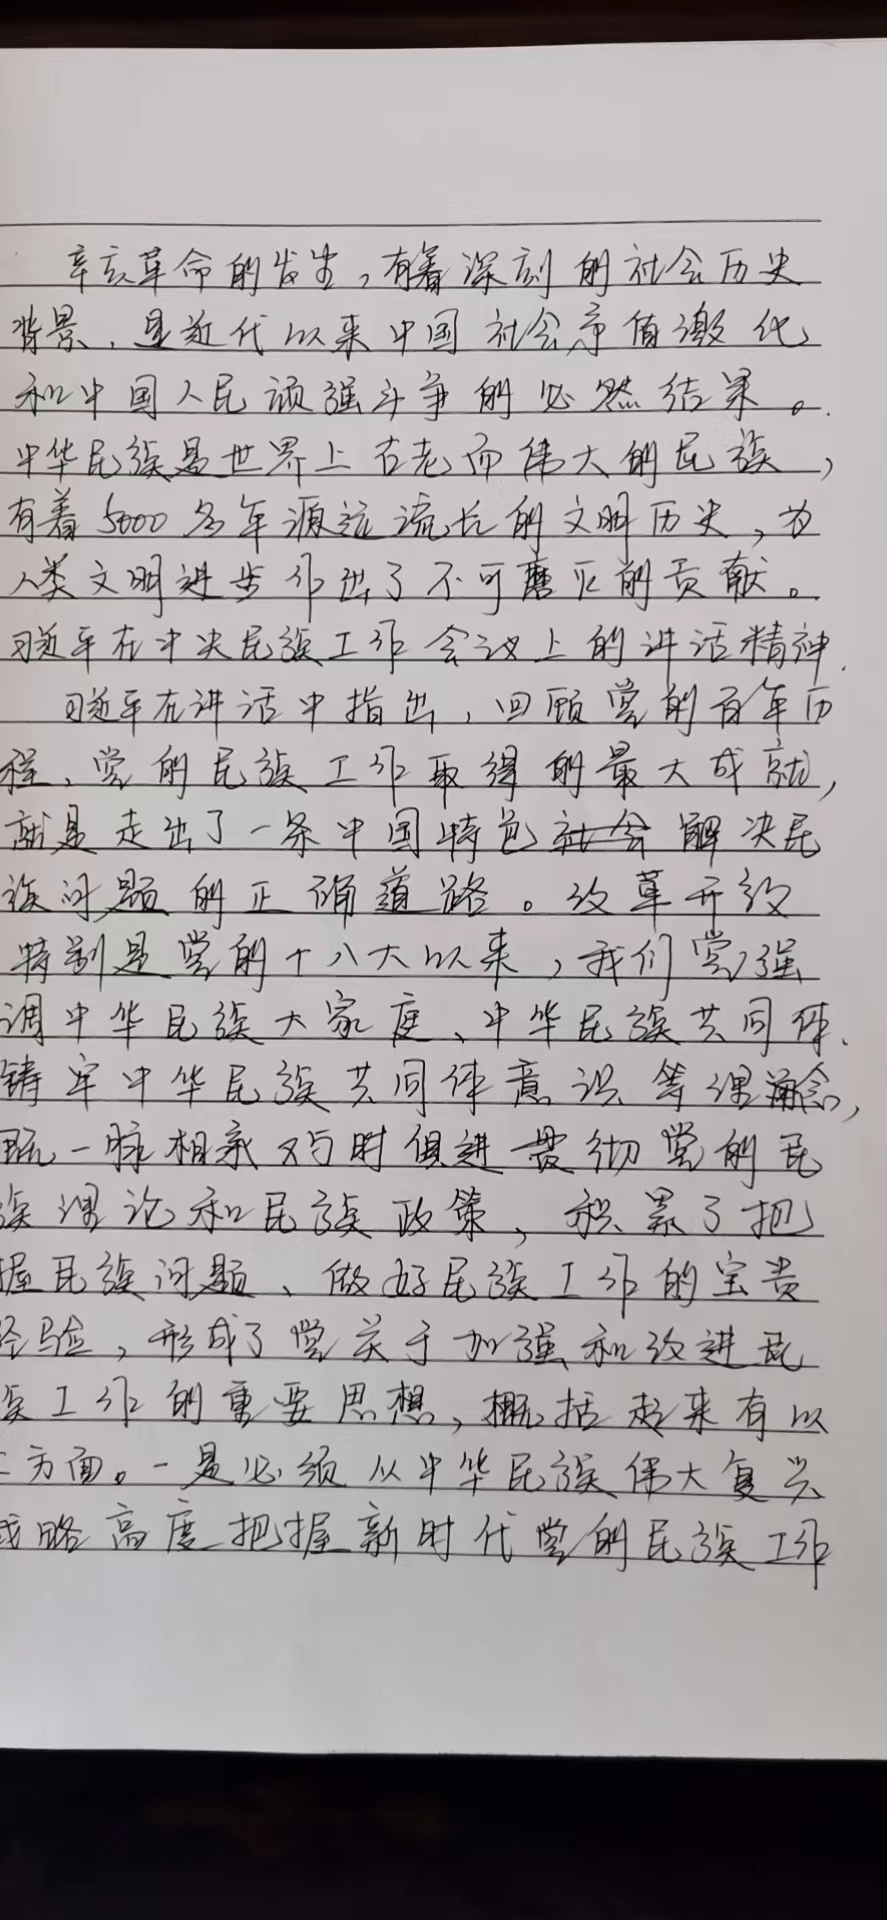 辛亥革命的发生,有着深刻的社会历史
背景,是近代以来中国社会矛盾激化
和中国人民顽强斗争的必然结果。
中华民族是世界上古老而伟大的民族,
有着5000多年源远流长的文明历史,为
人类文明进步作出了不可磨灭的贡献。
习近平在中央民族工作会议上的讲话精神
习近平在讲话中指出,回顾党的百年历
程、党的民族工作取得的最大成就,
就是走出了一条中国特色解决民
族问题的正确道路。改革开放
特别是党的十八大以来,我们党强
调中华民族大家庭、中华民族共同体、
铸牢中华民族共同体意识等理念,
既一脉相承又与时俱进贯彻党的民
族理论和民族政策,积累了把
握民族问题、做好民族工作的宝贵
经验,形成了党关于加强和改进民
族工作的重要思想,概括起来有以
方面。一是必须从中华民族伟大复兴
战略高度把握新时代党的民族工作